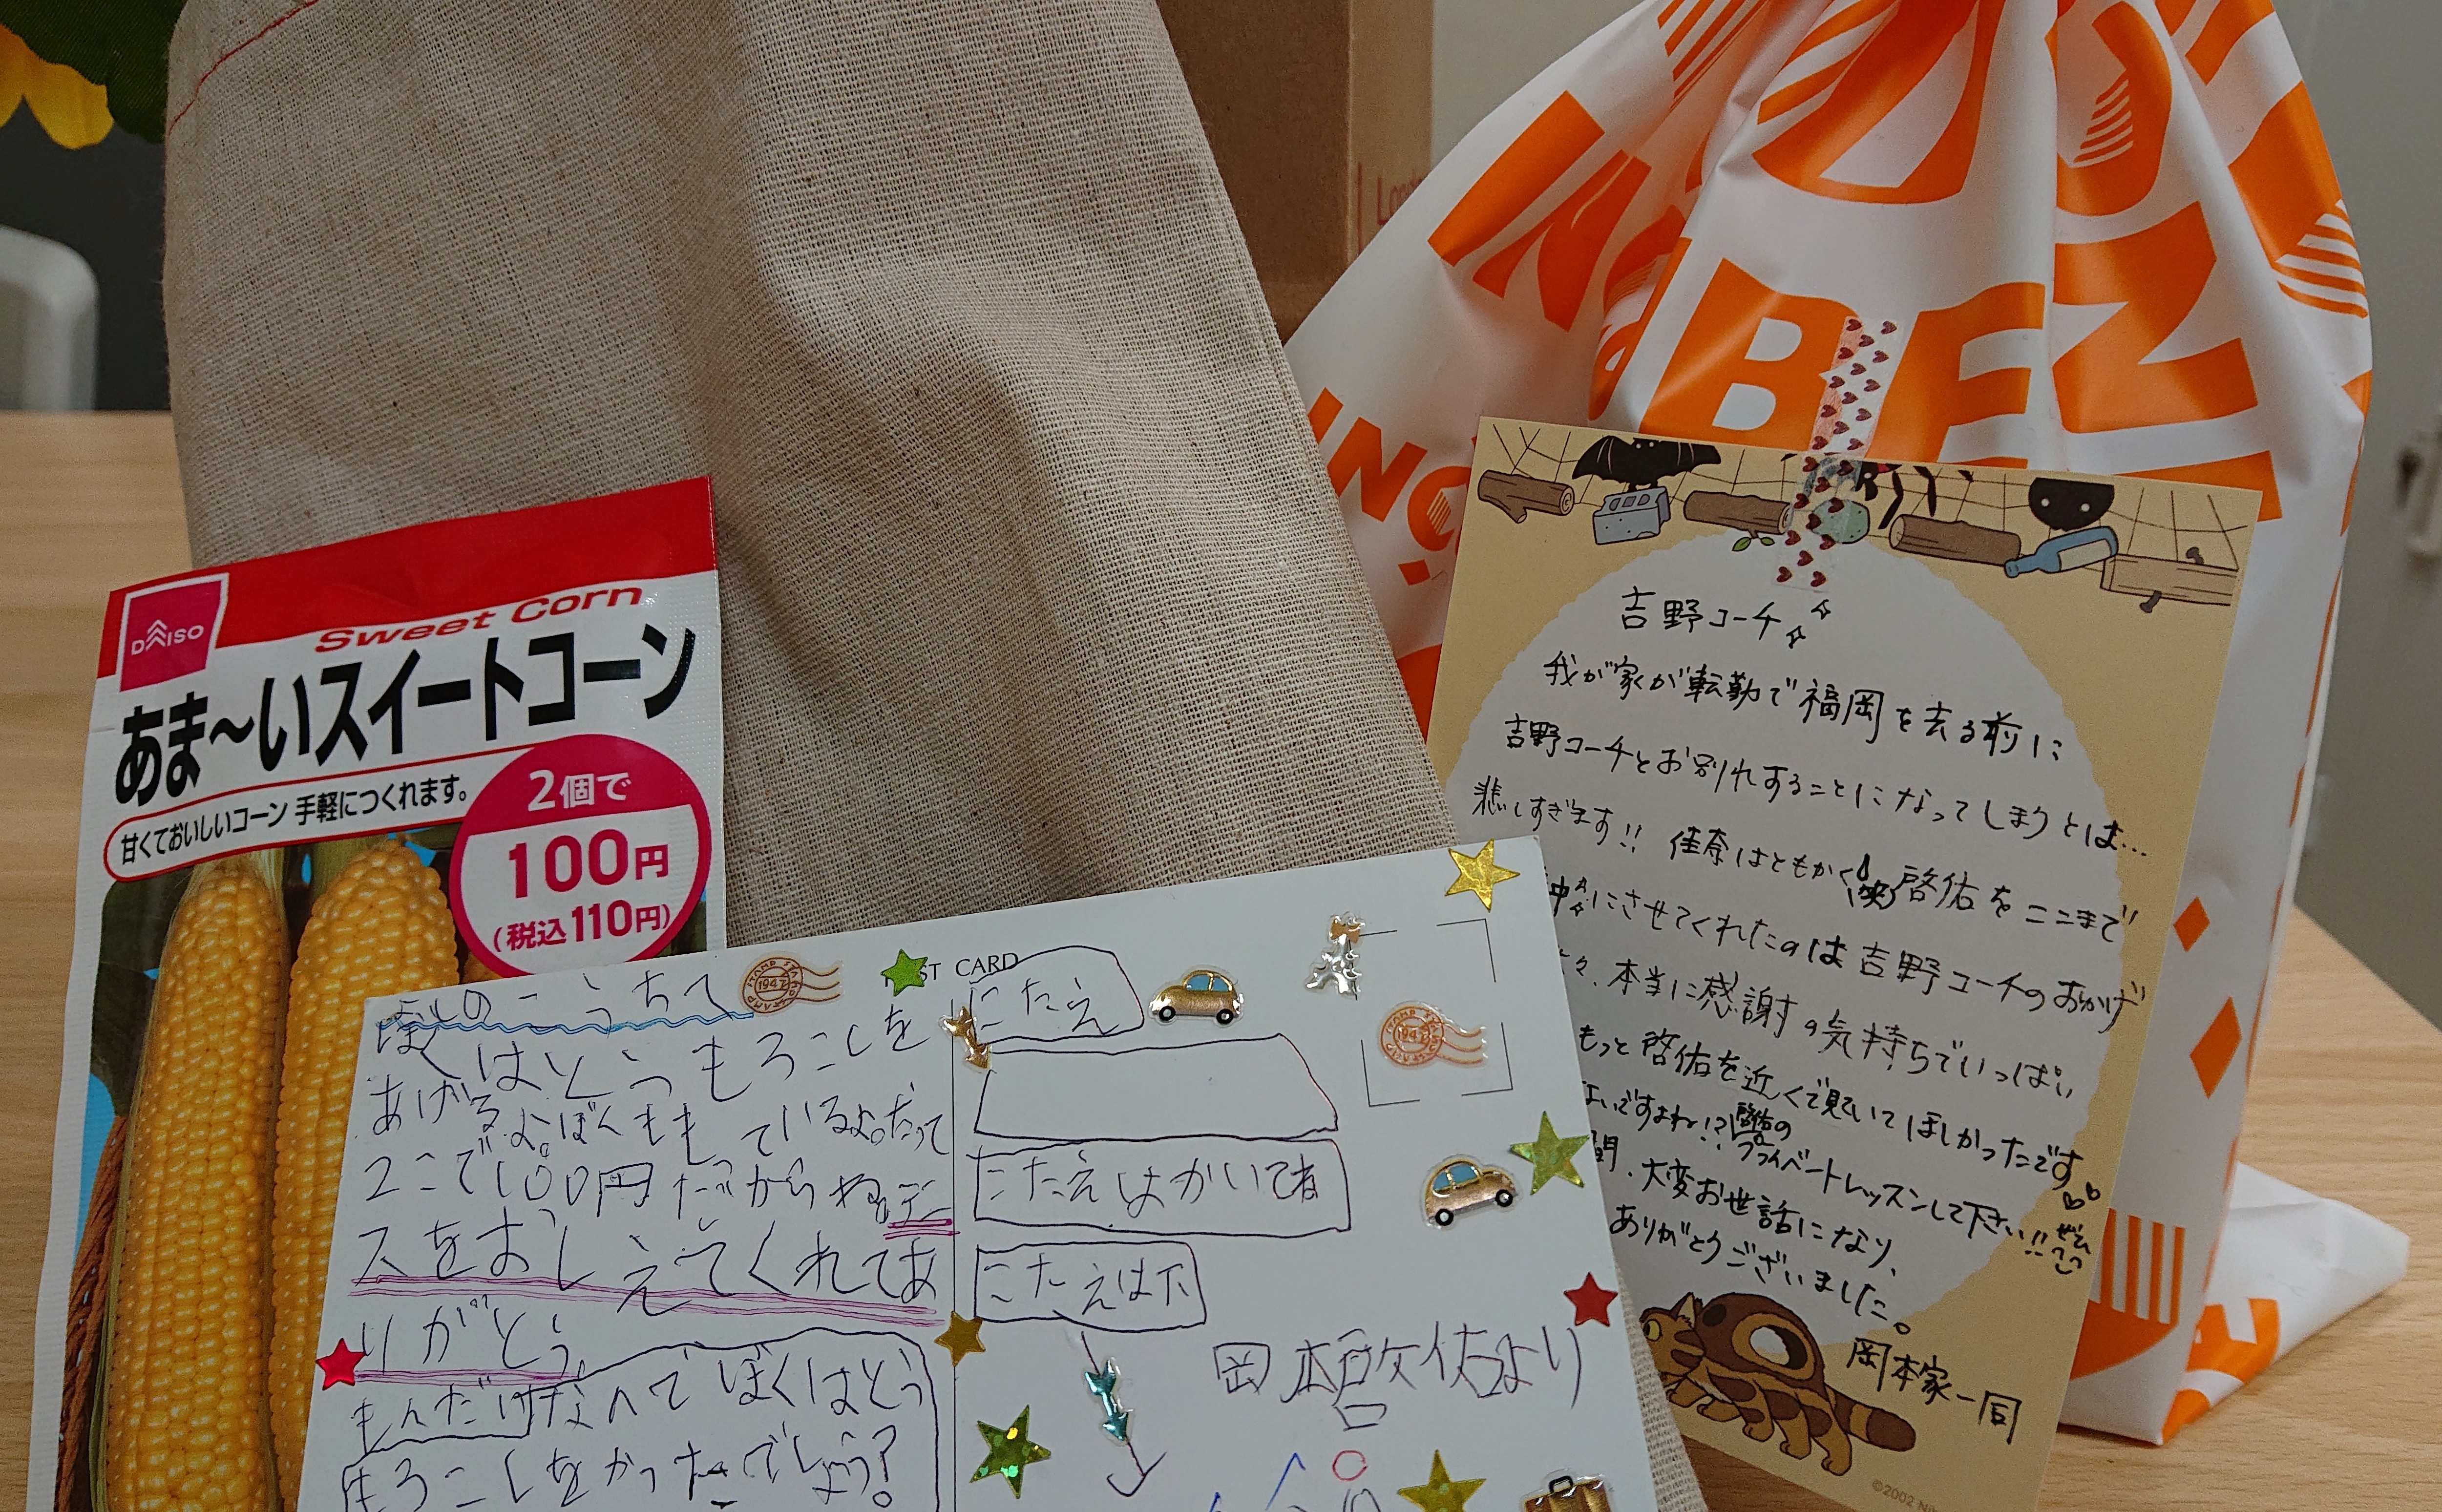 DAISO
Sweet Corn
あま～いスイートコーン
甘くておいしいコーン 手軽につくれます。
2個で
100円
(税込110円)
ST CARD
ぼくはとうもろこしを
あげるよ。ぼくももっているよ。だって
2こで100円だからね。テニ
スをおしえてくれてあ
りがとう。
もんだい なんでぼくはとう
もろこしをかったでしょう?
こたえ
こたえはかいてね
こたえは下
岡本啓佑より
吉野コーチ
我が家が転勤で福岡を去る前に
吉野コーチとお別れすることになってしまうとは…
悲しすぎます!! 佳奈はともかく(笑)啓佑をここまで
にさせてくれたのは吉野コーチのおかげ
々、本当に感謝の気持ちでいっぱい
もっと啓佑を近くで見ていてほしかったです
いですよね!?啓佑の
プライベートレッスンして下さい!!ぜひ
間、大変お世話になり、
ありがとうございました。
岡本家一同
©2002
BE